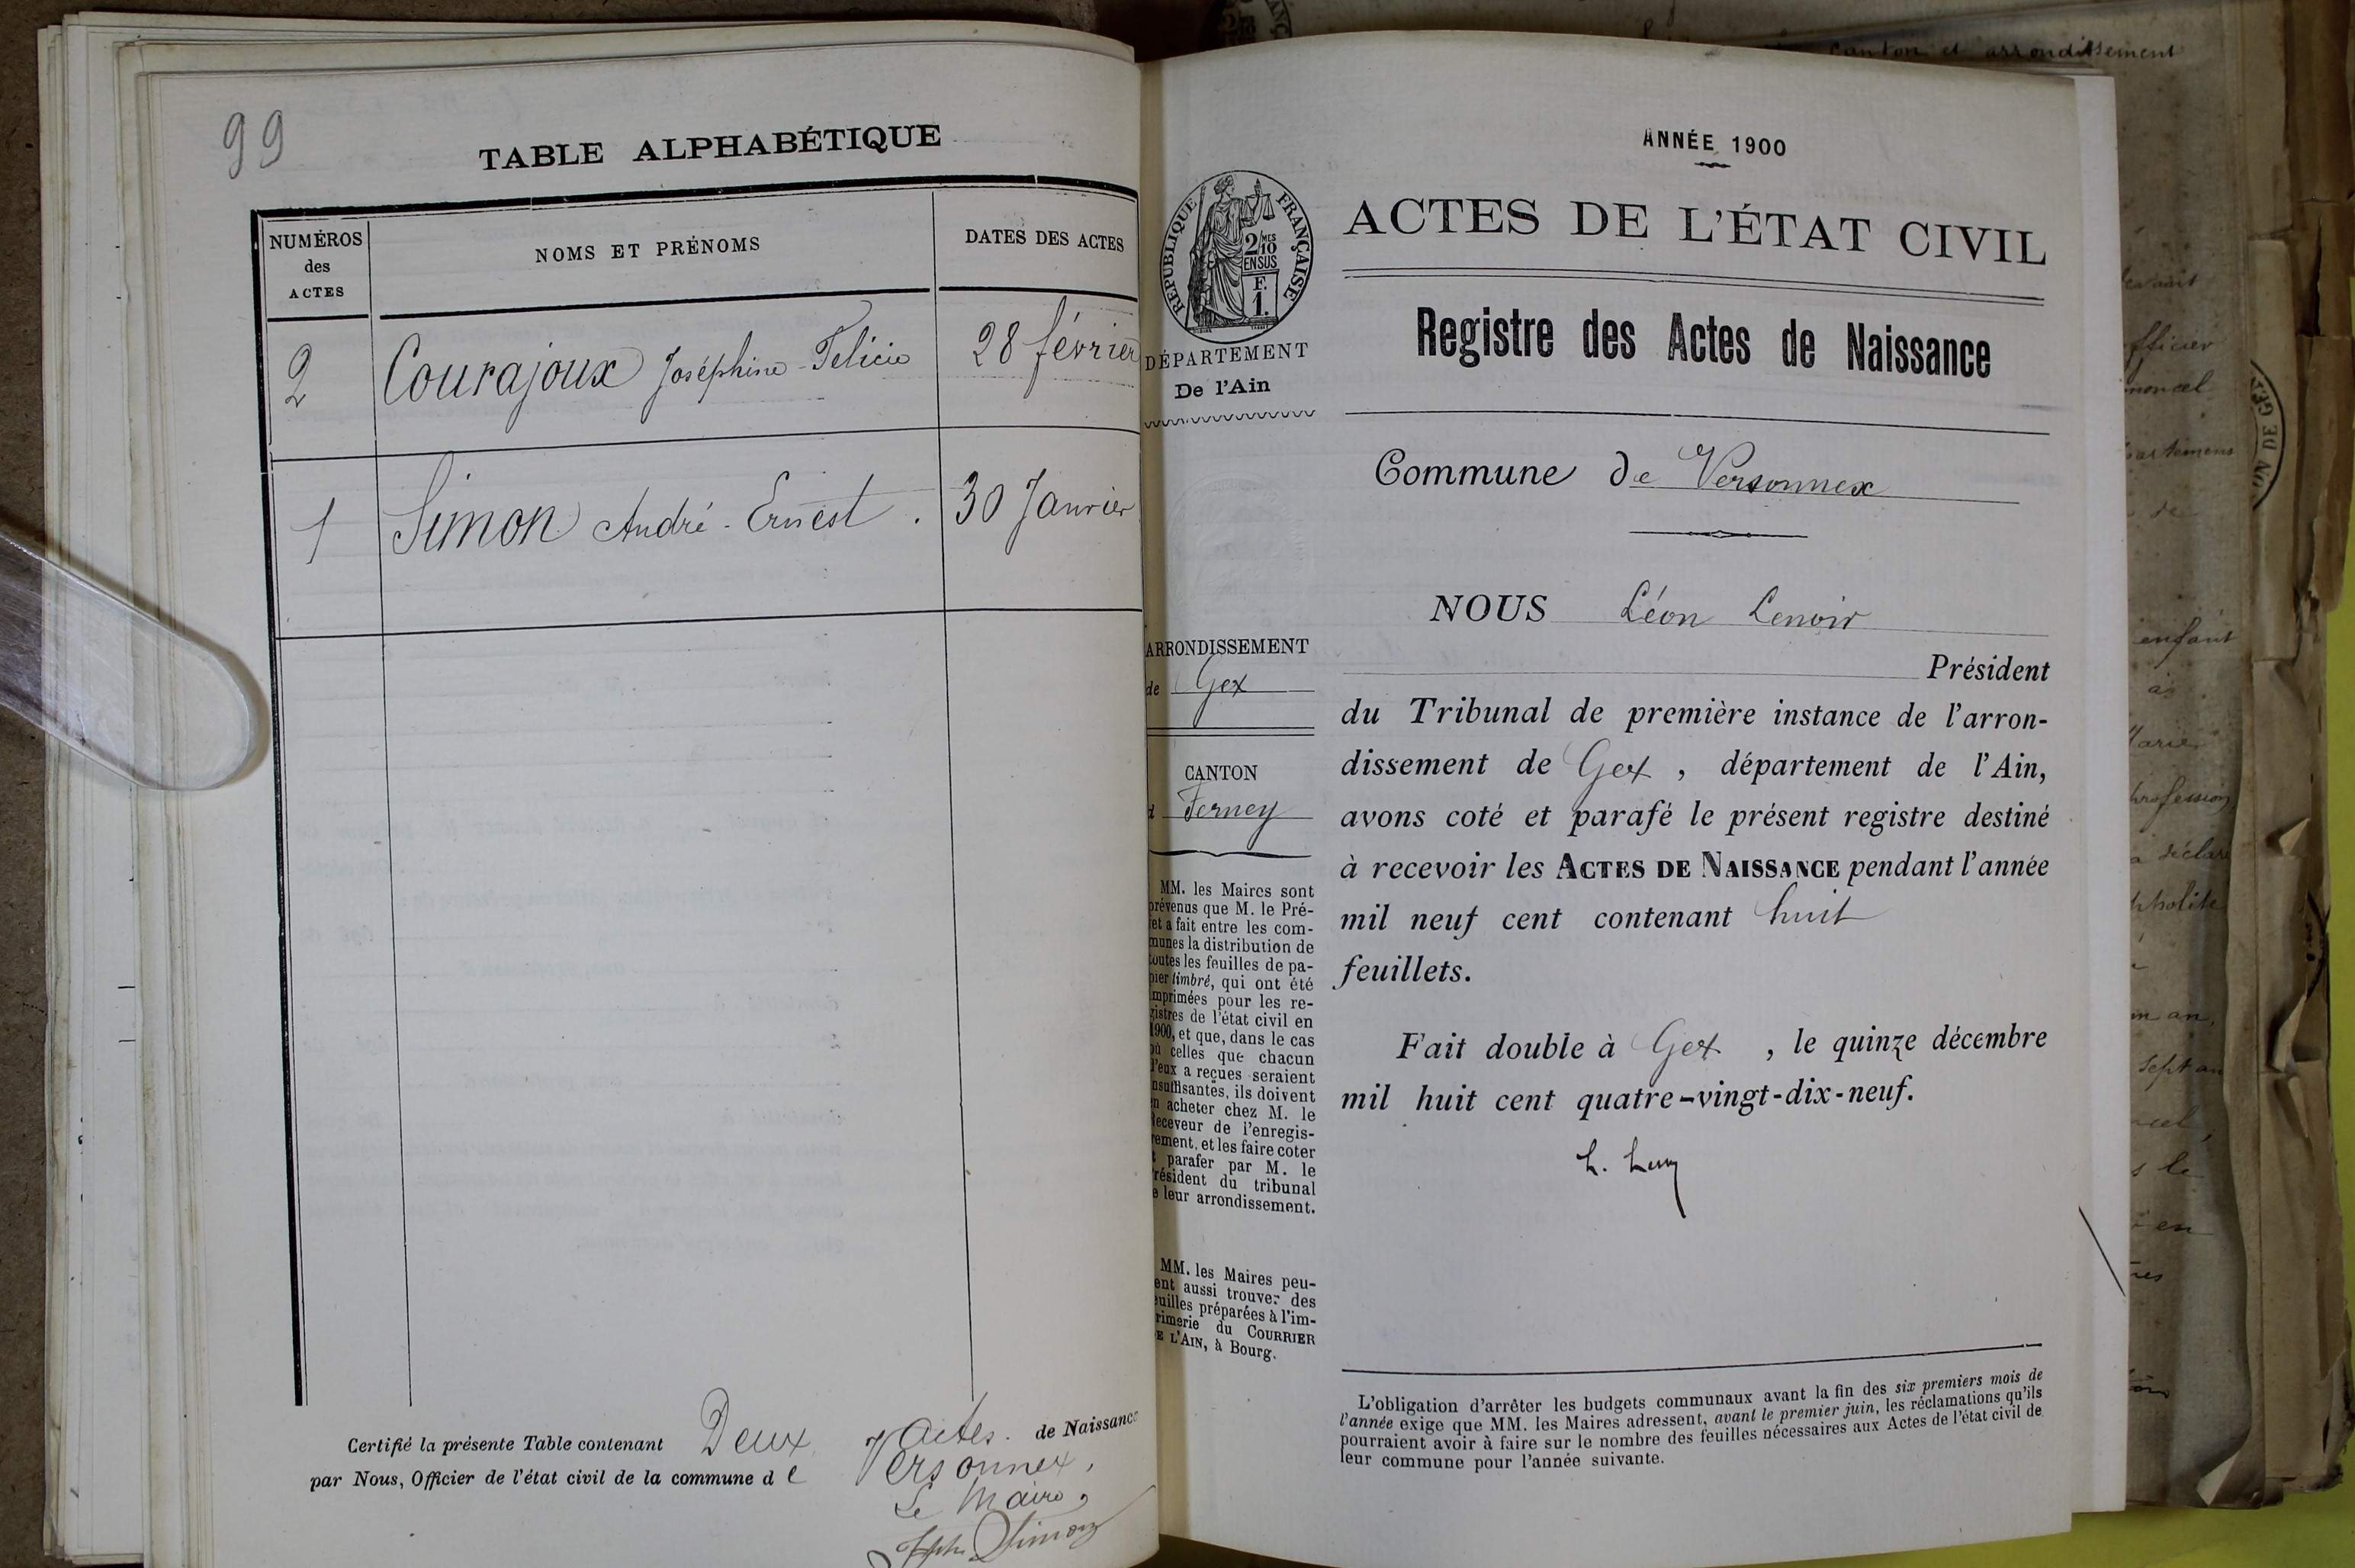 99
TABLE ALPHABÉTIQUE
NUMÉROS
des
ACTES
NOMS ET PRÉNOMS
DATES DES ACTES
2 Courajoux Joséphine-Félicie 28 février
1 Simon André-Ernest. 30 Janvier
Certifié la présente Table contenant Deux actes. de Naissance
par Nous, Officier de l'état civil de la commune de Versonnex,
Le Maire,
Simon
ANNÉE 1900
RÉPUBLIQUE FRANÇAISE
2/10 MES
EN SUS
F.
1.
DÉPARTEMENT
De l'Ain
ARRONDISSEMENT
de Gex
CANTON
d Ferney
MM. les Maires sont
prévenus que M. le Pré-
fet a fait entre les com-
munes la distribution de
toutes les feuilles de pa-
pier timbré, qui ont été
imprimées pour les re-
gistres de l'état civil en
1900, et que, dans le cas
où celles que chacun
d'eux a reçues seraient
insuffisantes, ils doivent
en acheter chez M. le
Receveur de l'enregis-
rement, et les faire coter
t parafer par M. le
Président du tribunal
e leur arrondissement.
MM. les Maires peu-
ent aussi trouver des
euilles préparées à l'im-
rimerie du COURRIER
E L'AIN, à Bourg.
ACTES DE L'ÉTAT CIVIL
Registre des Actes de Naissance
Commune de Versonnex
NOUS Léon Lenoir
Président
du Tribunal de première instance de l'arron-
dissement de Gex, département de l'Ain,
avons coté et parafé le présent registre destiné
à recevoir les ACTES DE NAISSANCE pendant l'année
mil neuf cent contenant huit
feuillets.
Fait double à Gex, le quinze décembre
mil huit cent quatre-vingt-dix-neuf.
L'obligation d'arrêter les budgets communaux avant la fin des six premiers mois de
l'année exige que MM. les Maires adressent, avant le premier juin, les réclamations qu'ils
pourraient avoir à faire sur le nombre des feuilles nécessaires aux Actes de l'état civil de
leur commune pour l'année suivante.
canton et arrondissement
enfant
profession